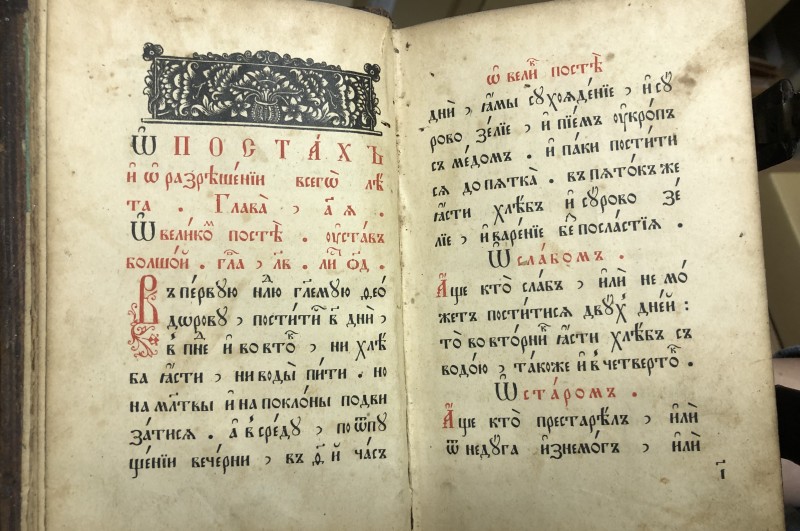 Ѡ ПОСТА́ХЪ
и҆ ѡ҆ разрѣше́нїи всегѡ̀ лѣ́
та . Глава̀ , а҃ѧ .
Ѡ вели́коⷨ постѣ̀ . оу҆ста́въ
болшо́й . гла̀ , л҃в . ли́ⷭ ѻ҃д .
Въ пе́рвую неⷣлю гл҃емую ѳ҆ео́
дѡрову , пости́ти в҃ дни̑ ,
в пнⷣе и҆ во втоⷬ , ни хлѣ́
ба ꙗ҆́сти , ни воды̀ пи́ти . но
на млт҃вы и҆ на покло́ны подви
за́тисѧ . а҆ в сре́ду , по ѿпу
ще́нїи вече́рни , въ ѳ҃ й ча́съ
ѡ҆ вели́ⷦ постѣ̀
днѝ , ꙗ҆́мы сухоѧде́нїе , и҆ су
рово зе́лїе , и҆ пїе́мъ оу҆кро́пъ
съ ме́домъ . и҆ па́ки пости́ти
сѧ до пѧтка̀ . в пѧто́къ же
ꙗ҆́сти хлѣ́бъ и҆ су́рово зе́
лїе , и҆ варе́нїе беⷥ посла́стїѧ .
Ѡ сла́бомъ .
А҆́ще кто̀ сла́бъ , и҆лѝ не мо́
жетъ пости́тисѧ двух̾ дне́й :
то̀ во вто́рниⷦ ꙗ҆́сти хлѣ́бъ съ
водо́ю , та́коже и҆ в четверто́ⷦ .
Ѡ ста́ромъ .
А҆́ще кто̀ престарѣ́лъ , и҆лѝ
ѿ неду́га и҆знемо́гъ , и҆лѝ
І